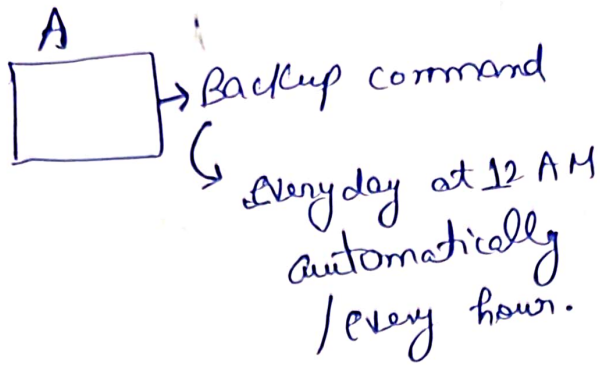 A
Backup command
every day at 12 AM
automatically
/every hour.